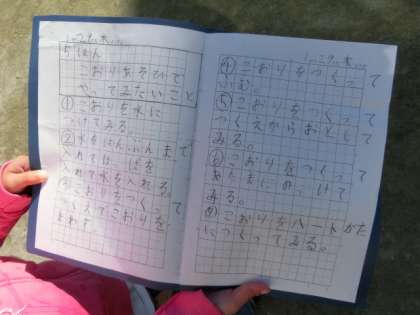 1-2
5はん
こおりあそびで
やってみたいこと
①こおりを水に
つけてみる。
②水をはんぶんまで
入れて、はっぱを
入れて水を入れる。
③こおりをつくって
つくえでこおりを
まわす。
1-2
④こおりをつくって
ふむ。
⑤こおりをつくって
つくえからおとして
みる。
⑥こおりをつくって
あたまにのっけて
みる。
⑦こおりをハートがた
につくってみる。